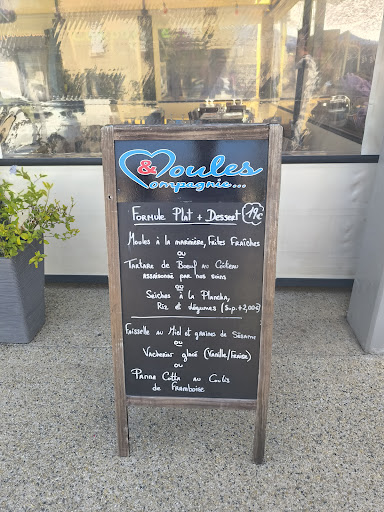 & Moules
Compagnie...
Formule Plat + Dessert 19€
Moules à la marinière, Frites Fraîches
ou
Tartare de Boeuf au Couteau
assaisonné par nos soins
ou
Seiches à la Plancha,
Riz et légumes (Sup. +2,00€)
Faisselle au Miel et graines de Sésame
ou
Vacherin glacé (Vanille/Fraise)
ou
Panna Cotta au Coulis
de Framboise